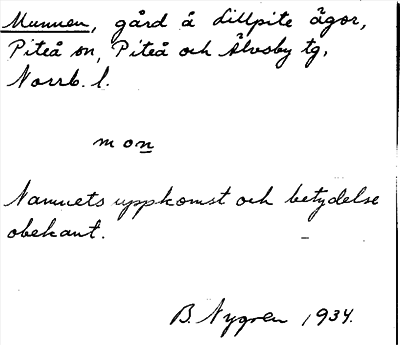 Munnen, gård å Lillpite ägor,
Piteå sn, Piteå och Älvsby tg,
Norrb. l.
mon
Namnets uppkomst och betydelse
obekant.
B. Nygren 1934.